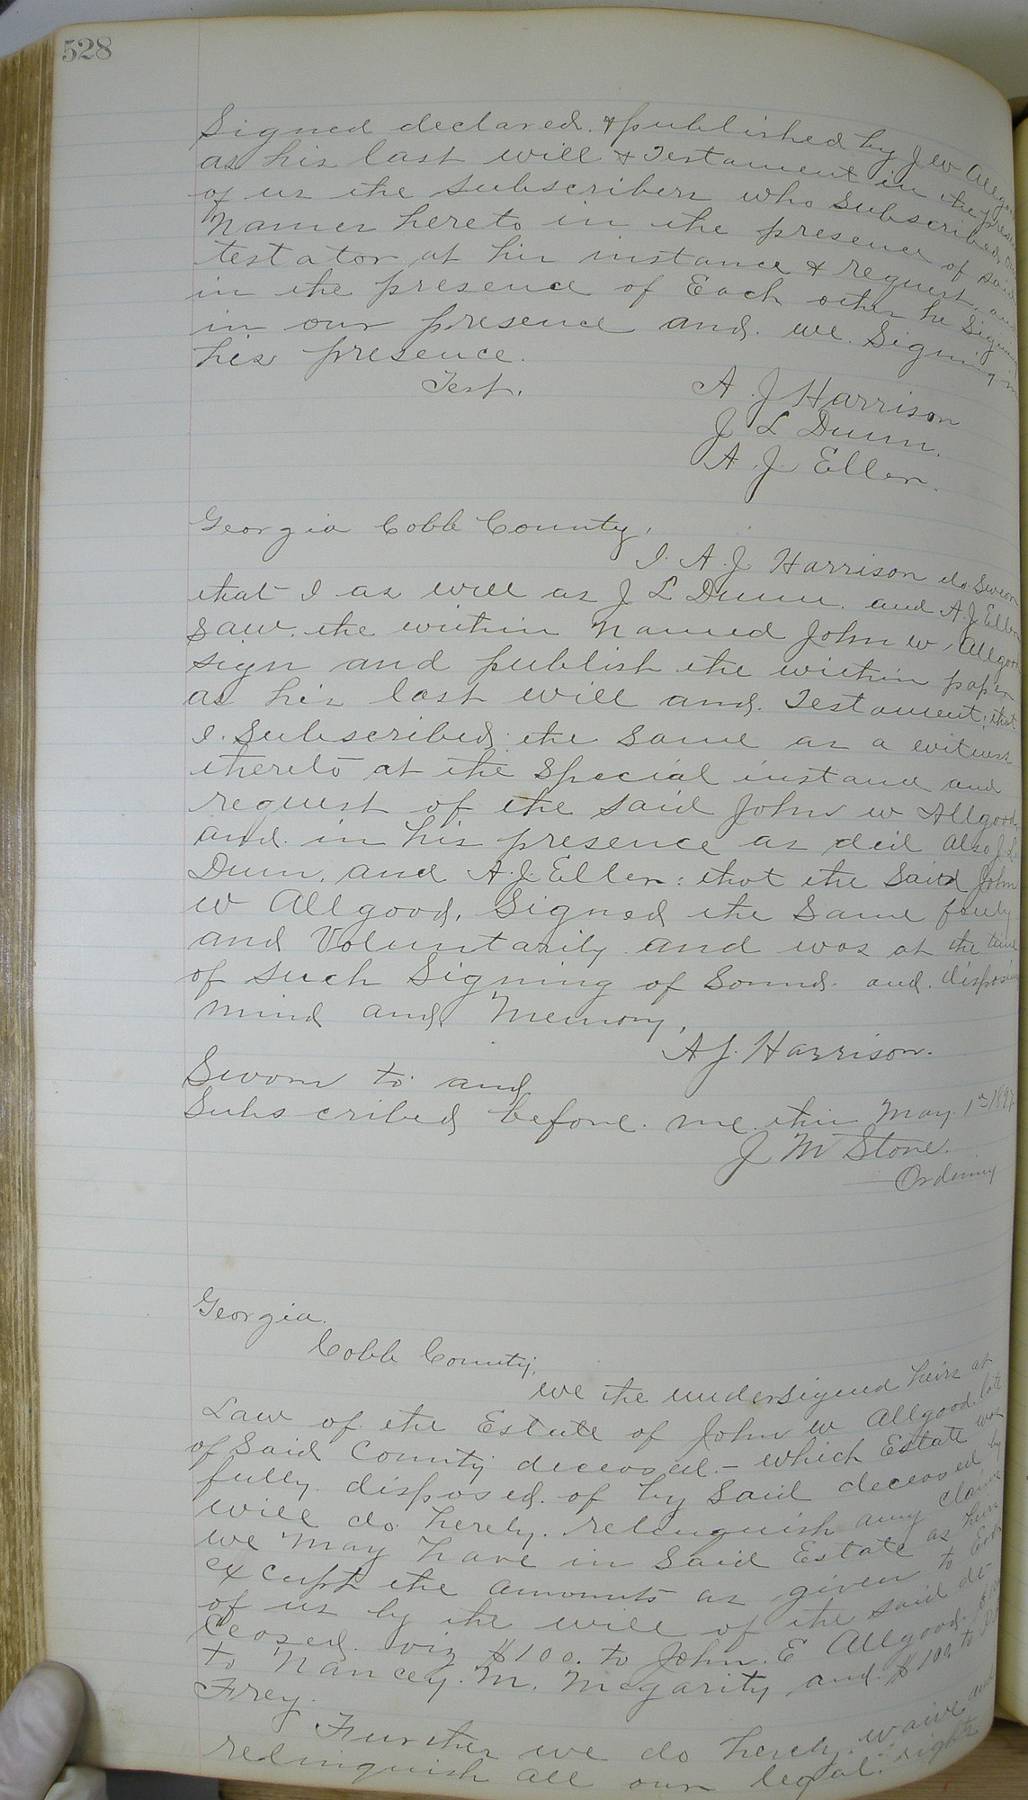 528
Signed declared. & published by J W Allgood
as his last will & Testament in the presence
of us the subscribers who Subscribed our
Names hereto in the presence of said
testator at his instance & request, and
in the presence of Each other he Signing
in our presence and. we. Signing in
his presence.
Test. A J Harrison
J L Dunn.
A. J Ellen.
Georgia Cobb County,
I. A. J Harrison do Swear
that I as will as J L Dunn. and A. J. Ellen
saw. the within named John W. Allgood
sign and publish the within paper
as his last will and. Testament, that
I. Subscribed the same as a witness
thereto at the Special instance and
request of the said John W Allgood
and. in his presence as did also J. L.
Dunn, and A. J. Ellen: that the Said John
W Allgood, Signed the Same freely
and Voluntarily and was at the time
of such Signing of Sound. and. disposing
mind and Memory,
A J. Harrison.
Sworn to and
Subscribed before. me. this May. 1st
J M Stone.
Ordinary
Georgia.
Cobb County,
We the undersigned heirs at
Law of the Estate of John W Allgood. late
of Said County deceased. - which Estate was
fully disposed. of by said deceased by
will do hereby. relinquish any claim
we may have in Said Estate as heirs
except the amounts as given to Each
of us by the will of the said de-
ceased. viz $100. to John. E Allgood. $100
to Nancey. M. Mcgarity and. $100 to
Frey.
Further we do hereby. waive and
relinquish all our legal. rights